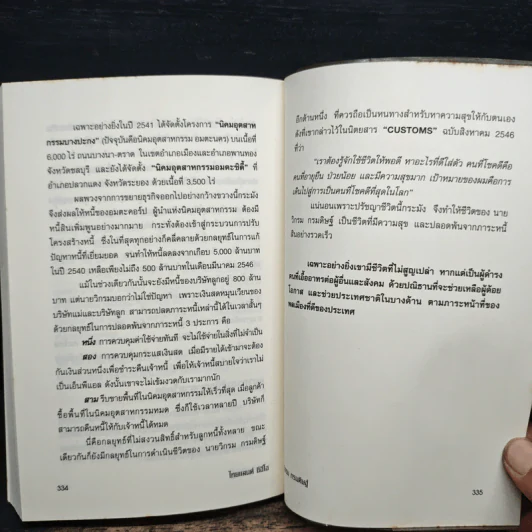 เฉพาะอย่างยิ่งในปี 2541 ได้จัดตั้งโครงการ "นิคมอุตสาห
กรรมบางปะกง" (ปัจจุบันคือนิคมอุตสาหกรรม อมตะนคร) บนเนื้อที่
6,000 ไร่ ถนนบางนา-ตราด ในเขตอำเภอเมืองและอำเภอพานทอง
จังหวัดชลบุรี และยังได้จัดตั้ง "นิคมอุตสาหกรรมอมตะซิตี้" ที่
อำเภอปลวกแดง จังหวัดระยอง ด้วยเนื้อที่ 3,500 ไร่
ผลพวงจากการขยายธุรกิจออกไปอย่างกว้างขวางนี้มัง
จึงส่งผลให้หนี้ของอมตะคอร์ป ผู้นำแห่งนิคมอุตสาหกรรม ต้องมี
หนี้สินเพิ่มพูนอย่างมากมาย กระทั่งต้องเข้าสู่กระบวนการปรับ
โครงสร้างหนี้ ซึ่งในที่สุดทุกอย่างก็คลี่คลายด้วยกลยุทธ์ในการแก้
ปัญหาหนี้ที่เยี่ยมยอด จนทำให้หนี้ลดลงจากเกือบ 5,000 ล้านบาท
ในปี 2540 เหลือเพียงไม่ถึง 500 ล้านบาทในเดือนมีนาคม 2546
แม้ในช่วงเดียวกันนั้นจะยังมีหนี้ของบริษัทลูกอยู่ 800 ล้าน
บาท แต่นายวิกรมบอกว่าไม่ใช่ปัญหา เพราะเงินสดหมุนเวียนของ
บริษัทแม่และบริษัทลูก สามารถปลดภาระหนี้เหล่านี้ได้ในเวลาสั้นๆ
ด้วยกลยุทธ์ในการปลดพันจากภาระหนี้ 3 ประการ คือ
หนึ่ง การควบคุมค่าใช้จ่ายทันที จะไม่ใช้จ่ายในสิ่งที่ไม่จำเป็น
สอง การควบคุมกระแสเงินสด เมื่อมีรายได้เข้ามาจะต้อง
กันเงินส่วนหนึ่งเพื่อชำระคืนเจ้าหนี้ เพื่อให้เจ้าหนี้สบายใจว่าเราไม่
เป็นเอ็นพีแอล ดังนั้นเขาจะไม่เข้มงวดกับเรามากนัก
สาม รีบขายพื้นที่ในนิคมอุตสาหกรรมให้เร็วที่สุด เมื่อลูกค้า
ซื้อพื้นที่ในนิคมอุตสาหกรรมหมด ซึ่งก็ใช้เวลาหลายปี บริษัทก็
สามารถคืนหนี้ให้กับเจ้าหนี้ได้หมด
นี่คือกลยุทธ์ที่ไม่สงวนสิทธิ์สำหรับลูกหนี้ทั้งหลาย ขณะ
เดียวกันก็ยังมีกลยุทธ์ในการดำเนินชีวิตของ นายวิกรม กรมดิษฐ์
334
ไทยแลนด์ ซีอีโอ
อีกด้านหนึ่ง ที่ควรถือเป็นหนทางสำหรับหาความสุขให้กับตนเอง
ดังที่เขากล่าวไว้ในนิตยสาร "CUSTOMS" ฉบับสิงหาคม 2546
ที่ว่า
"เราต้องรู้จักใช้ชีวิตให้พอดี หาอะไรที่ดีใส่ตัว คนที่โชคดีคือ
คนที่อายุยืน ป่วยน้อย และมีความสุขมาก เป้าหมายของผมคือการ
เดินไปสู่การเป็นคนที่โชคดีที่สุดในโลก"
แน่นอนเพราะปรัชญาชีวิตนี้กระมัง จึงทำให้ชีวิตของ นาย
วิกรม กรมดิษฐ์ เป็นชีวิตที่มีความสุข และปลอดพ้นจากภาระหนี้
สินอย่างรวดเร็ว
เฉพาะอย่างยิ่งเขามีชีวิตที่ไม่สูญเปล่า หากแต่เป็นผู้ดำรง
ตนที่เอื้ออาทรต่อผู้อื่นและสังคม ด้วยปณิธานที่จะช่วยเหลือผู้ด้อย
โอกาส และช่วยประเทศชาติในบางด้าน ตามภาระหน้าที่ของ
พลเมืองที่ดีของประเทศ
กรมดิษฐ์
335